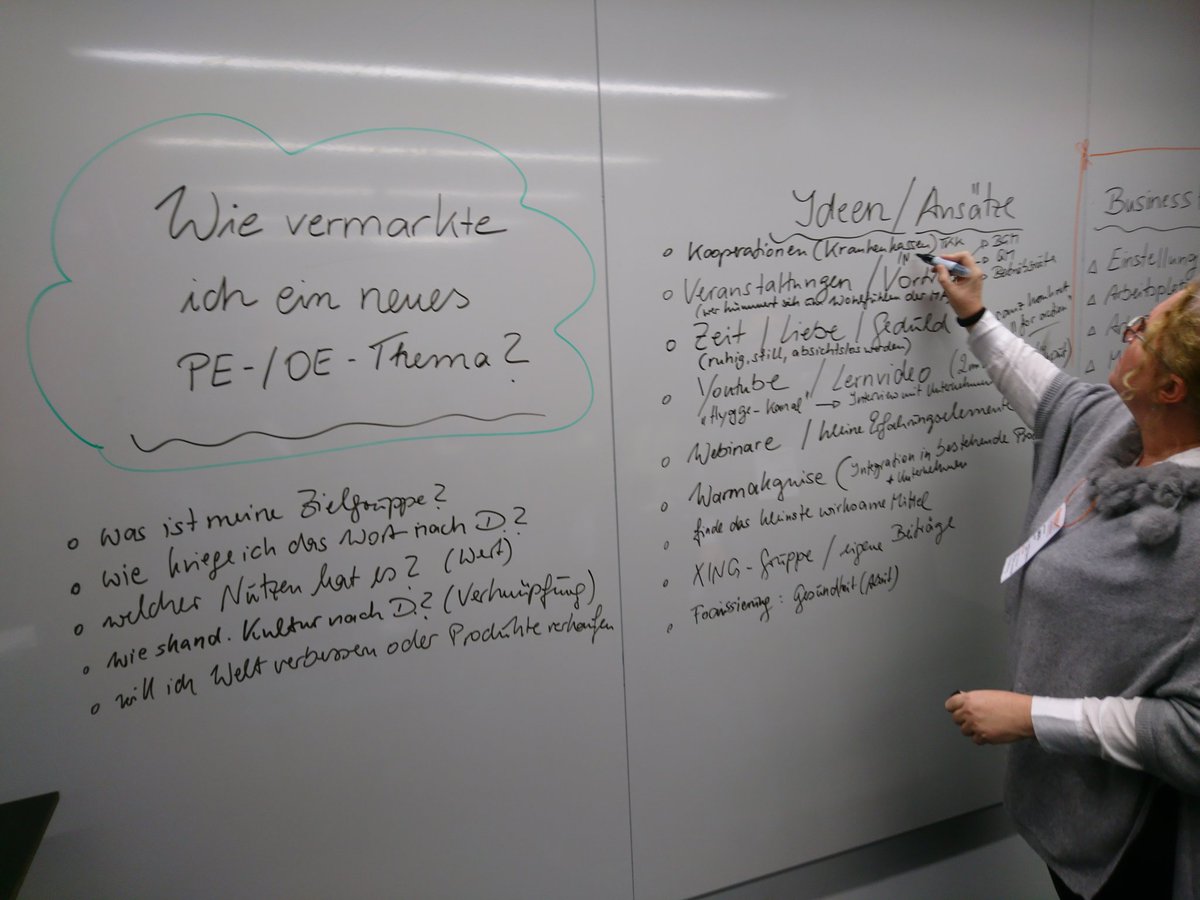 Wie vermarkte
ich ein neues
PE-/OE-Thema?
was ist meine Zielgruppe?
wie kriege ich das Wort nach D.?
welcher Nutzen hat es? (Wert)
wie skand. Kultur nach D.? (Verknüpfung)
will ich Welt verbessern oder Produkte verkaufen
Ideen/Ansätze
Kooperationen (Krankenkassen) TKK → BGM
→ QM
→ Betriebsräte
Veranstaltungen /
(wer kümmert sich um Wohlfühlen der MA
Zeit / Liebe / Geduld
(ruhig, still, absichtslos werden)
Youtube / Lernvideo
"Hygge-Kanal" → Interview mit Unternehmern
Webinare / kleine Erfahrungselemente
Warmakquise (Integration in bestehende
+ Unternehmen
finde das kleinste wirksame Mittel
XING-Gruppe / eigene Beiträge
Fokussierung: Gesundheit (Arbeit)
Business
Einstellung